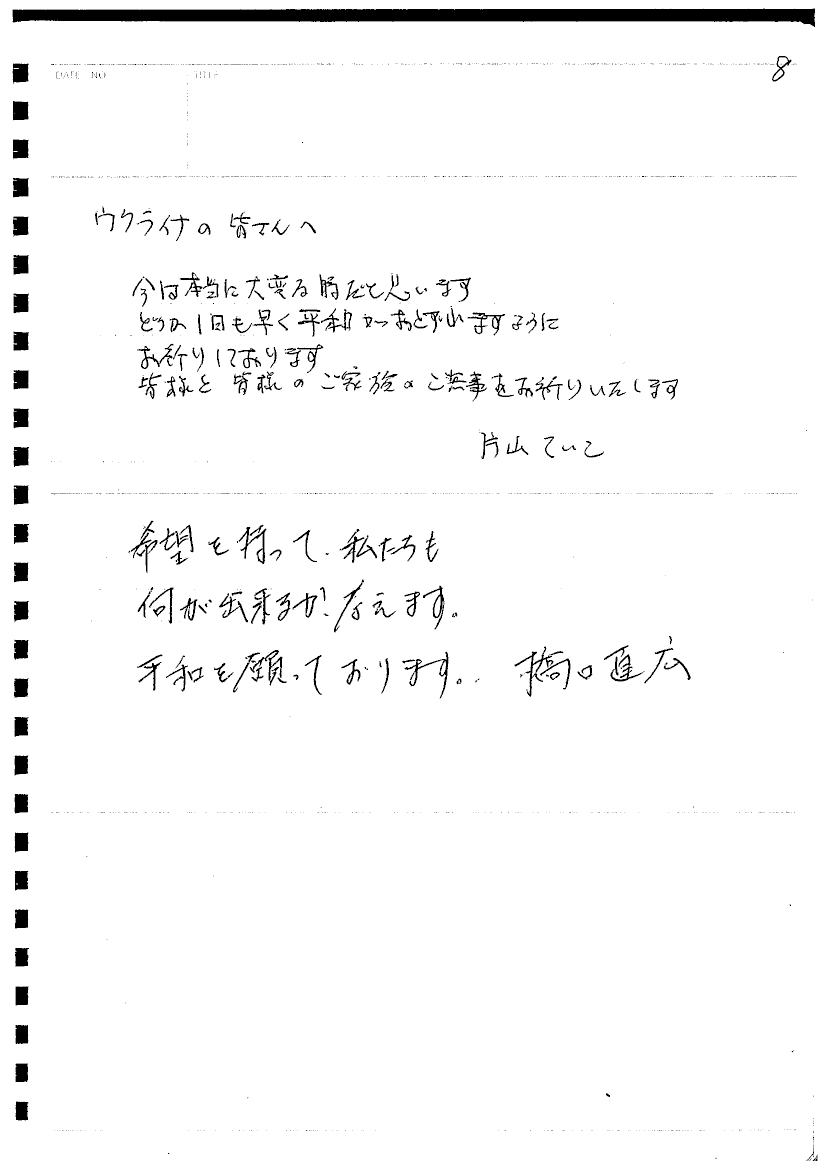 8
DATE NO
TITLE
ウクライナの皆さんへ
今は本当に大変な時だと思います
どうか1日も早く平和がおとずれますように
お祈りしております
皆様と皆様のご家族のご無事をお祈りいたします
片山ていこ
希望を持って、私たちも
何が出来るか、考えます。
平和を願っております。 橋口直広